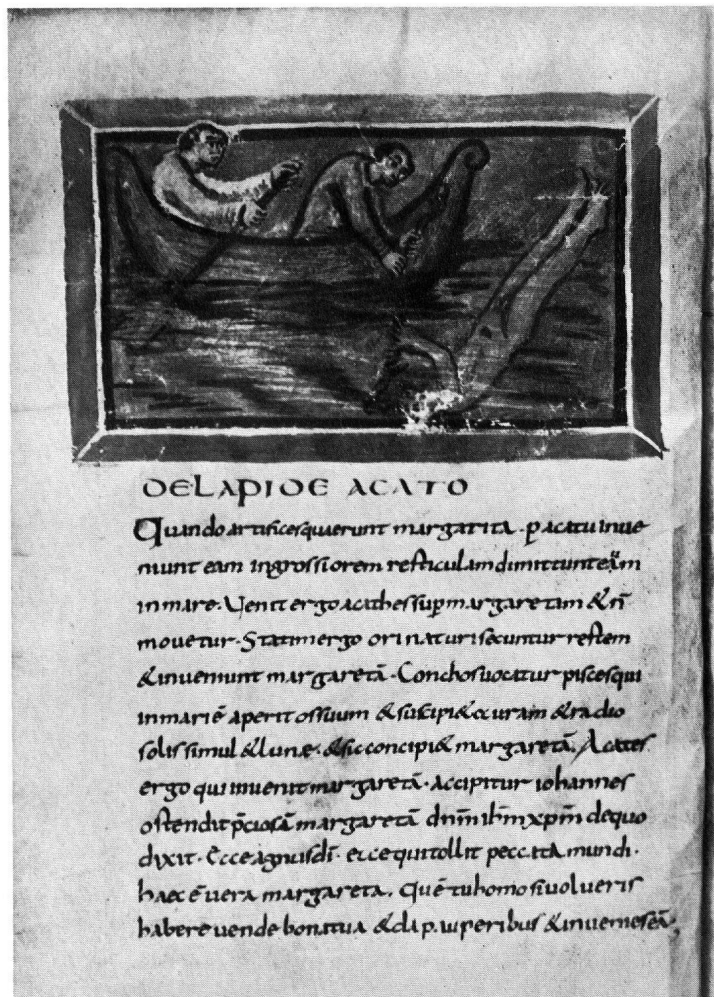 DE LAPIDE ACATO
Quando artifices quierunt margarita · p acatu inue
niunt eam in grossiorem resticulam dimittunt eam
in mare · Uenit ergo acathes sup margaretam & ñ
mouetur · Statim ergo orinaturi secuntur restem
& inueniunt margaretā · Conchos uocatur pisces qui
in mari ē aperit os suum & suscipi& ccuram & radio
solis simul & lunę · & sic concipi& margaretā, Acates
ergo qui inuenit margaretā · accipitur iohannes
ostendit p̄ciosā margaretā dnm̄ ihm̄ xpm̄ de quo
dixit · Ecce agnus dī · ecce qui tollit peccata mundi ·
haec ē uera margareta · Quē tu homo si uolueris
habere uende bona tua & da p.uperibus & inuenies eā,